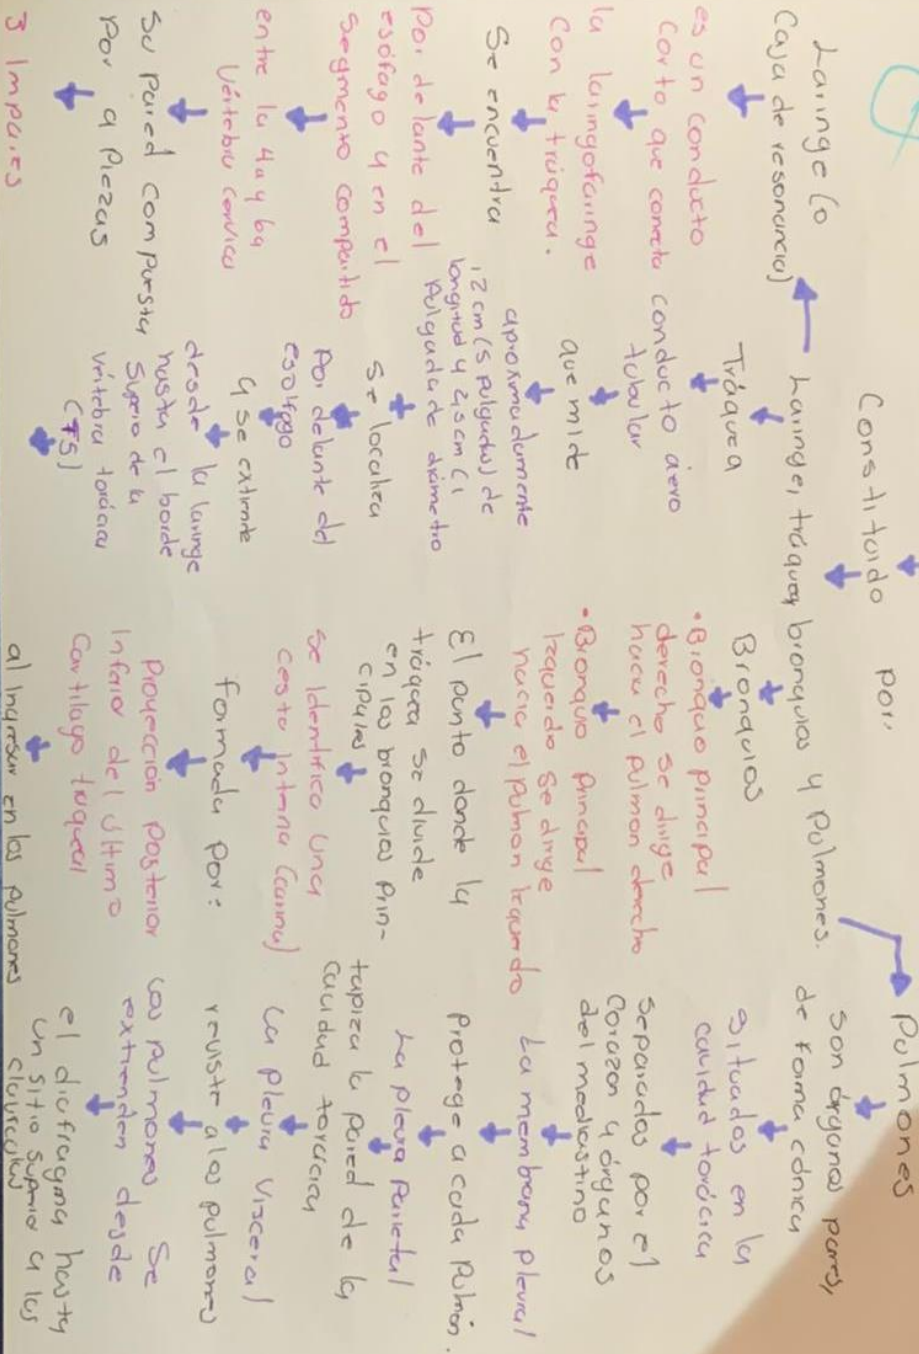 Constituido por:
Laringe, tráquea, bronquios y pulmones.
Laringe (o
Caja de resonancia)
es un conducto
corto que conecta
la laringofaringe
con la tráquea.
Se encuentra
Por delante del
esófago y en el
segmento compartido
entre la 4a y 6a
vértebra cervical
Su pared compuesta
Por 9 Piezas
3 Impares
Tráquea
conducto aéreo
tubular
que mide
aproximadamente
12 cm (5 pulgadas) de
longitud y 2,5 cm (1
pulgada de diámetro
Se localiza
Por delante del
esófago
y se extiende
desde la laringe
hasta el borde
superio de la
vértebra torácica
(T5)
Bronquios
•Bronquio principal
derecho se dirige
hacia el pulmon derecho
•Bronquio principal
Izquierdo se dirge
hacia el pulmon Izquierdo
El punto donde la
tráquea se divide
en los bronquios prin-
cipales
Se Identifica una
cresta interna (carina)
Formada por:
Proyección posterior
Inferior del último
Cartílago traqueal
al Ingresar en los pulmones
Pulmones
Son órganos pares,
de forma cónica
Situados en la
cavidad torácica
Separados por el
Corazon y órganos
del mediastino
La membrana pleural
Protege a cada Pulmón.
La pleura parietal
tapiza la pared de la
cavidad torácica
La pleura Visceral
reviste a los pulmones
Los pulmones Se
extienden desde
el diafragma hasta
un sitio superior a las
clavículas